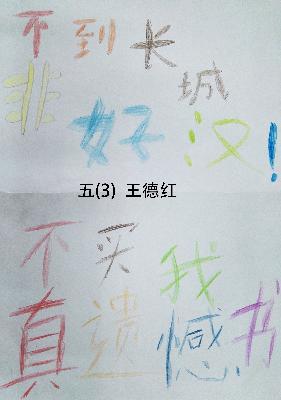 不到长城
非好汉!
五(3) 王德红
不买我书
真遗憾